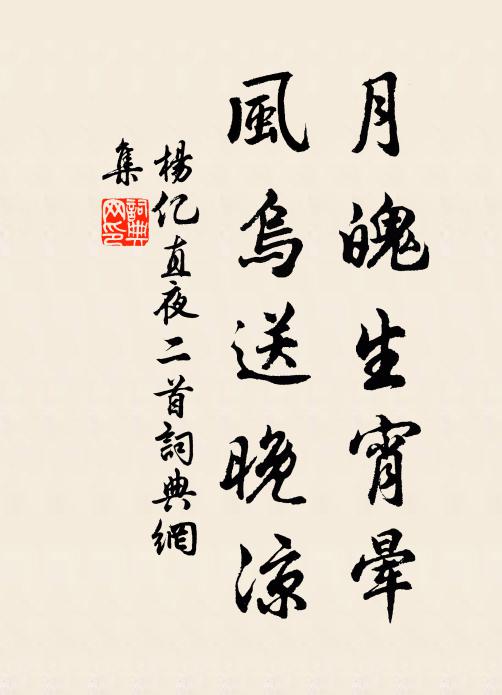 月魄生宵暈
風烏送晚涼
楊亿直夜二首詞典網
集
詞典
网印